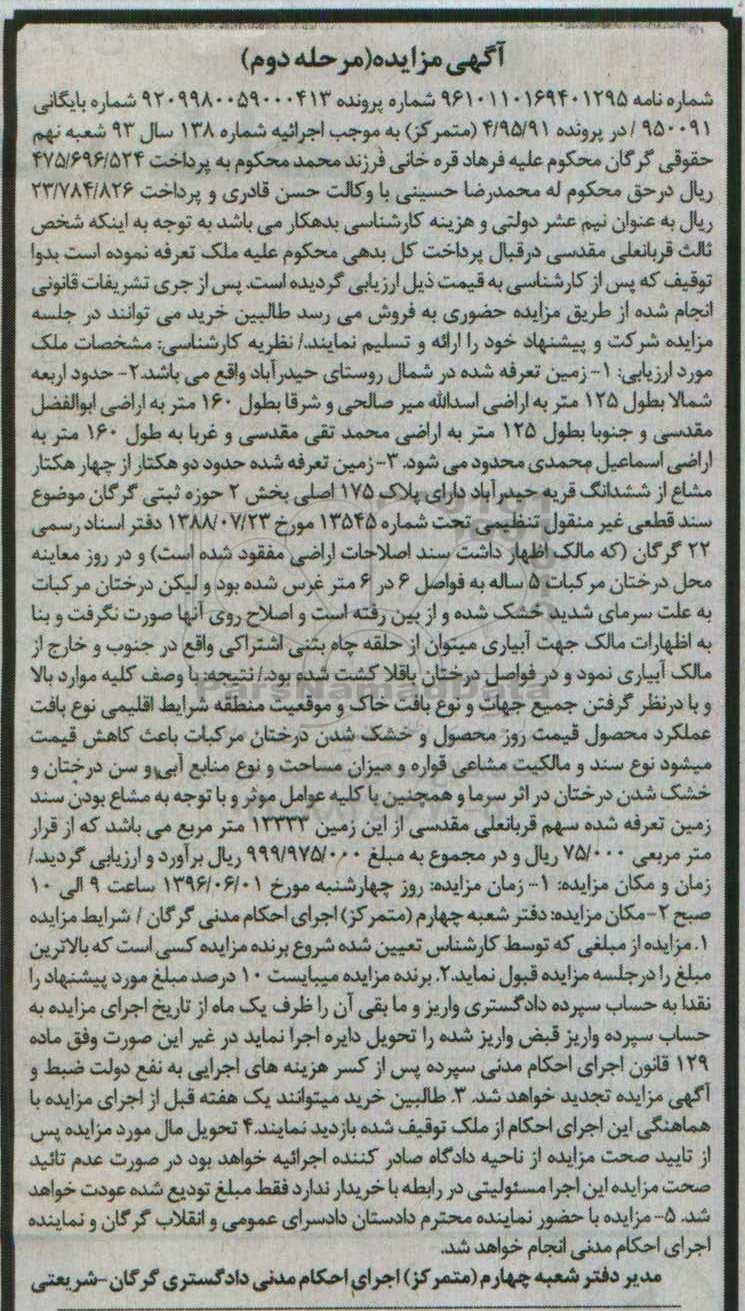 آگهی مزایده(مرحله دوم)
شماره نامه ۹۶۱۰۱۱۰۱۶۹۴۰۱۲۹۵ شماره پرونده ۹۲۰۹۹۸۰۰۵۹۰۰۰۴۱۳ شماره بایگانی
۹۵۰۰۹۱ / در پرونده ۴/۹۵/۹۱ (متمرکز) به موجب اجرائیه شماره ۱۳۸ سال ۹۳ شعبه نهم
حقوقی گرگان محکوم علیه فرهاد قره خانی فرزند محمد محکوم به پرداخت ۴۷۵/۶۹۶/۵۲۴
ریال درحق محکوم له محمدرضا حسینی با وکالت حسن قادری و پرداخت ۲۳/۷۸۴/۸۲۶
ریال به عنوان نیم عشر دولتی و هزینه کارشناسی بدهکار می باشد به توجه به اینکه شخص
ثالث قربانعلی مقدسی درقبال پرداخت کل بدهی محکوم علیه ملک تعرفه نموده است بدوا
توقیف که پس از کارشناسی به قیمت ذیل ارزیابی گردیده است. پس از جری تشریفات قانونی
انجام شده از طریق مزایده حضوری به فروش می رسد طالبین خرید می توانند در جلسه
مزایده شرکت و پیشنهاد خود را ارائه و تسلیم نمایند./ نظریه کارشناسی: مشخصات ملک
مورد ارزیابی: ۱- زمین تعرفه شده در شمال روستای حیدرآباد واقع می باشد.۲- حدود اربعه
شمالا بطول ۱۲۵ متر به اراضی اسدالله میر صالحی و شرقا بطول ۱۶۰ متر به اراضی ابوالفضل
مقدسی و جنوبا بطول ۱۲۵ متر به اراضی محمد تقی مقدسی و غربا به طول ۱۶۰ متر به
اراضی اسماعیل محمدی محدود می شود. ۳-زمین تعرفه شده حدود دو هکتار از چهار هکتار
مشاع از ششدانگ قریه حیدرآباد دارای پلاک ۱۷۵ اصلی بخش ۲ حوزه ثبتی گرگان موضوع
سند قطعی غیر منقول تنظیمی تحت شماره ۱۳۵۴۵ مورخ ۱۳۸۸/۰۷/۲۳ دفتر اسناد رسمی
۲۲ گرگان (که مالک اظهار داشت سند اصلاحات اراضی مفقود شده است) و در روز معاینه
محل درختان مرکبات ۵ ساله به فواصل ۶ در ۶ متر غرس شده بود و لیکن درختان مرکبات
به علت سرمای شدید خشک شده و از بین رفته است و اصلاح روی آنها صورت نگرفت و بنا
به اظهارات مالک جهت آبیاری میتوان از حلقه چاه بتنی اشتراکی واقع در جنوب و خارج از
مالک آبیاری نمود و در فواصل درختان باقلا کشت شده بود./ نتیجه: با وصف کلیه موارد بالا
و با درنظر گرفتن جمیع جهات و نوع بافت خاک و موقعیت منطقه شرایط اقلیمی نوع بافت
عملکرد محصول قیمت روز محصول و خشک شدن درختان مرکبات باعث کاهش قیمت
میشود نوع سند و مالکیت مشاعی قواره و میزان مساحت و نوع منابع آبی و سن درختان و
خشک شدن درختان در اثر سرما و همچنین با کلیه عوامل موثر و با توجه به مشاع بودن سند
زمین تعرفه شده سهم قربانعلی مقدسی از این زمین ۱۳۳۳۳ متر مربع می باشد که از قرار
متر مربعی ۷۵/۰۰۰ ریال و در مجموع به مبلغ ۹۹۹/۹۷۵/۰۰۰ ریال برآورد و ارزیابی گردید./
زمان و مکان مزایده: ۱- زمان مزایده: روز چهارشنبه مورخ ۱۳۹۶/۰۶/۰۱ ساعت ۹ الی ۱۰
صبح ۲-مکان مزایده: دفتر شعبه چهارم (متمرکز) اجرای احکام مدنی گرگان / شرایط مزایده
۱. مزایده از مبلغی که توسط کارشناس تعیین شده شروع برنده مزایده کسی است که بالاترین
مبلغ را درجلسه مزایده قبول نماید.۲. برنده مزایده میبایست ۱۰ درصد مبلغ مورد پیشنهاد را
نقدا به حساب سپرده دادگستری واریز و ما بقی آن را ظرف یک ماه از تاریخ اجرای مزایده به
حساب سپرده واریز قبض واریز شده را تحویل دایره اجرا نماید در غیر این صورت وفق ماده
۱۲۹ قانون اجرای احکام مدنی سپرده پس از کسر هزینه های اجرایی به نفع دولت ضبط و
آگهی مزایده تجدید خواهد شد. ۳. طالبین خرید میتوانند یک هفته قبل از اجرای مزایده با
هماهنگی این اجرای احکام از ملک توقیف شده بازدید نمایند.۴ تحویل مال مورد مزایده پس
از تایید صحت مزایده از ناحیه دادگاه صادر کننده اجرائیه خواهد بود در صورت عدم تائید
صحت مزایده این اجرا مسئولیتی در رابطه با خریدار ندارد فقط مبلغ تودیع شده عودت خواهد
شد. ۵- مزایده با حضور نماینده محترم دادستان دادسرای عمومی و انقلاب گرگان و نماینده
اجرای احکام مدنی انجام خواهد شد.
مدیر دفتر شعبه چهارم (متمرکز) اجرای احکام مدنی دادگستری گرگان-شریعتی
ParsNamadData